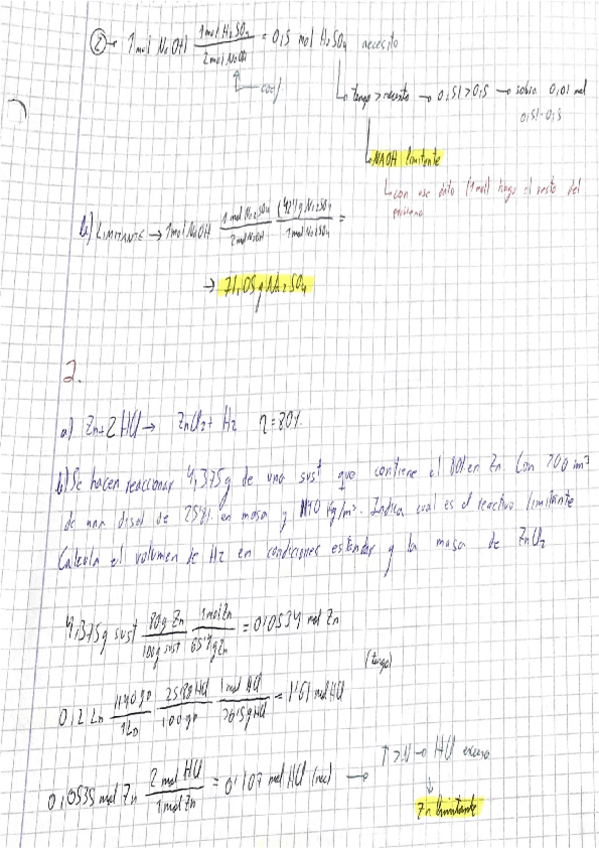 ② → 1 mol NaOH 1 mol H₂SO₄ / 2 mol NaOH = 0,5 mol H₂SO₄ necesito
coef
tengo > necesito → 0,51 > 0,5 → sobra 0,01 mol
0,51-0,5
NAOH limitante
con ese dato (1 mol) hago el resto del
problema
b) LIMITANTE → 1 mol NaOH 1 mol Na₂SO₄ / 2 mol NaOH 142'1 g Na₂SO₄ / 1 mol Na₂SO₄ =
→ 71,05 g Na₂SO₄
2.
a) Zn + 2 HCl → ZnCl₂ + H₂ η = 80%
b) Se hacen reaccionar 4,375g de una sust que contiene el 80% en Zn. Con 200 cm³
de una disol de 25'8% en masa y 1140 kg/m³. Indica cual es el reactivo limitante
Calcula el volumen de H₂ en condiciones estandar y la masa de ZnCl₂
4,375g sust 80g Zn / 100g sust 1 mol Zn / 65'4 g Zn = 0,0534 mol Zn
(tengo)
0,2 L 1140 g / 1 L 25'8g HCl / 100 g 1 mol HCl / 36'5g HCl = 1'61 mol HCl
0,0535 mol Zn 2 mol HCl / 1 mol Zn = 0,107 mol HCl (nec) → T > N → HCl exceso
Zn limitante